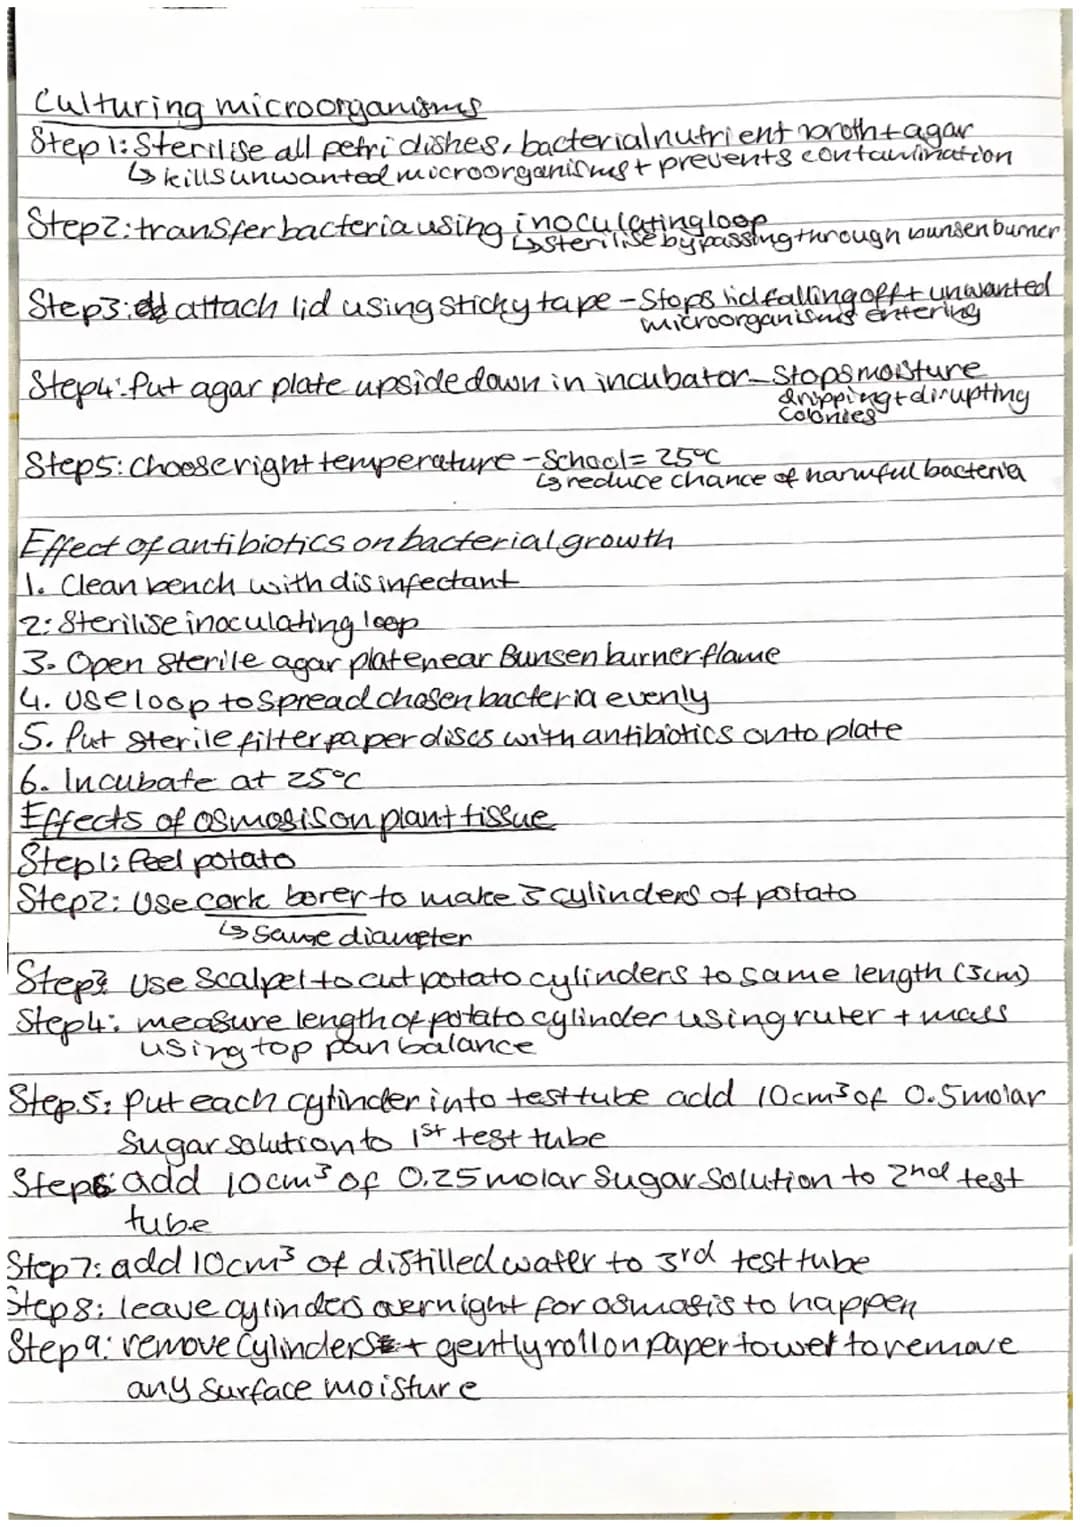 Culturing microorganisms
Step 1: Sterilise all petri dishes, bacterial nutrient broth + agar
↳ kills unwanted microorganisms + prevents contamination
Step 2: transfer bacteria using inoculating loop
↳ sterilise by passing through bunsen burner
Step 3: attach lid using sticky tape - Stops lid falling off + unwanted
microorganisms entering
Step 4: Put agar plate upside down in incubator - Stops moisture
dripping + disrupting
colonies
Step 5: Choose right temperature - School = 25°C
↳ reduce chance of harmful bacteria
Effect of antibiotics on bacterial growth
1. Clean bench with disinfectant
2: Sterilise inoculating loop
3. Open sterile agar plate near Bunsen burner flame
4. Use loop to spread chosen bacteria evenly
5. Put sterile filter paper discs with antibiotics onto plate
6. Incubate at 25°C
Effects of osmosis on plant tissue
Step 1: Peel potato
Step 2: Use cork borer to make 3 cylinders of potato
↳ Same diameter
Step 3 Use Scalpel to cut potato cylinders to same length (3cm)
Step 4: measure length of potato cylinder using ruler + mass
using top pan balance
Step 5: Put each cylinder into test tube add 10cm³ of 0.5 molar
Sugar solution to 1st test tube
Step 6: add 10cm³ of 0.25 molar Sugar Solution to 2nd test
tube
Step 7: add 10cm³ of distilled water to 3rd test tube
Step 8: leave cylinders overnight for osmosis to happen
Step 9: remove Cylinders + gently roll on paper towel to remove
any surface moisture